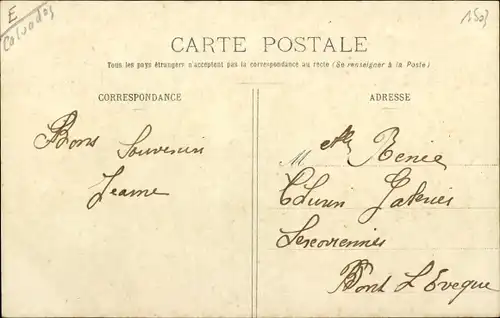 E
Calvados
1503
CARTE POSTALE
Tous les pays étrangers n'acceptent pas la correspondance au recto (Se renseigner à la Poste)
CORRESPONDANCE
ADRESSE
Bons Souvenirs
Jeanne
Melle Renée
Galeries
Lexoviennes
Pont L'Eveque